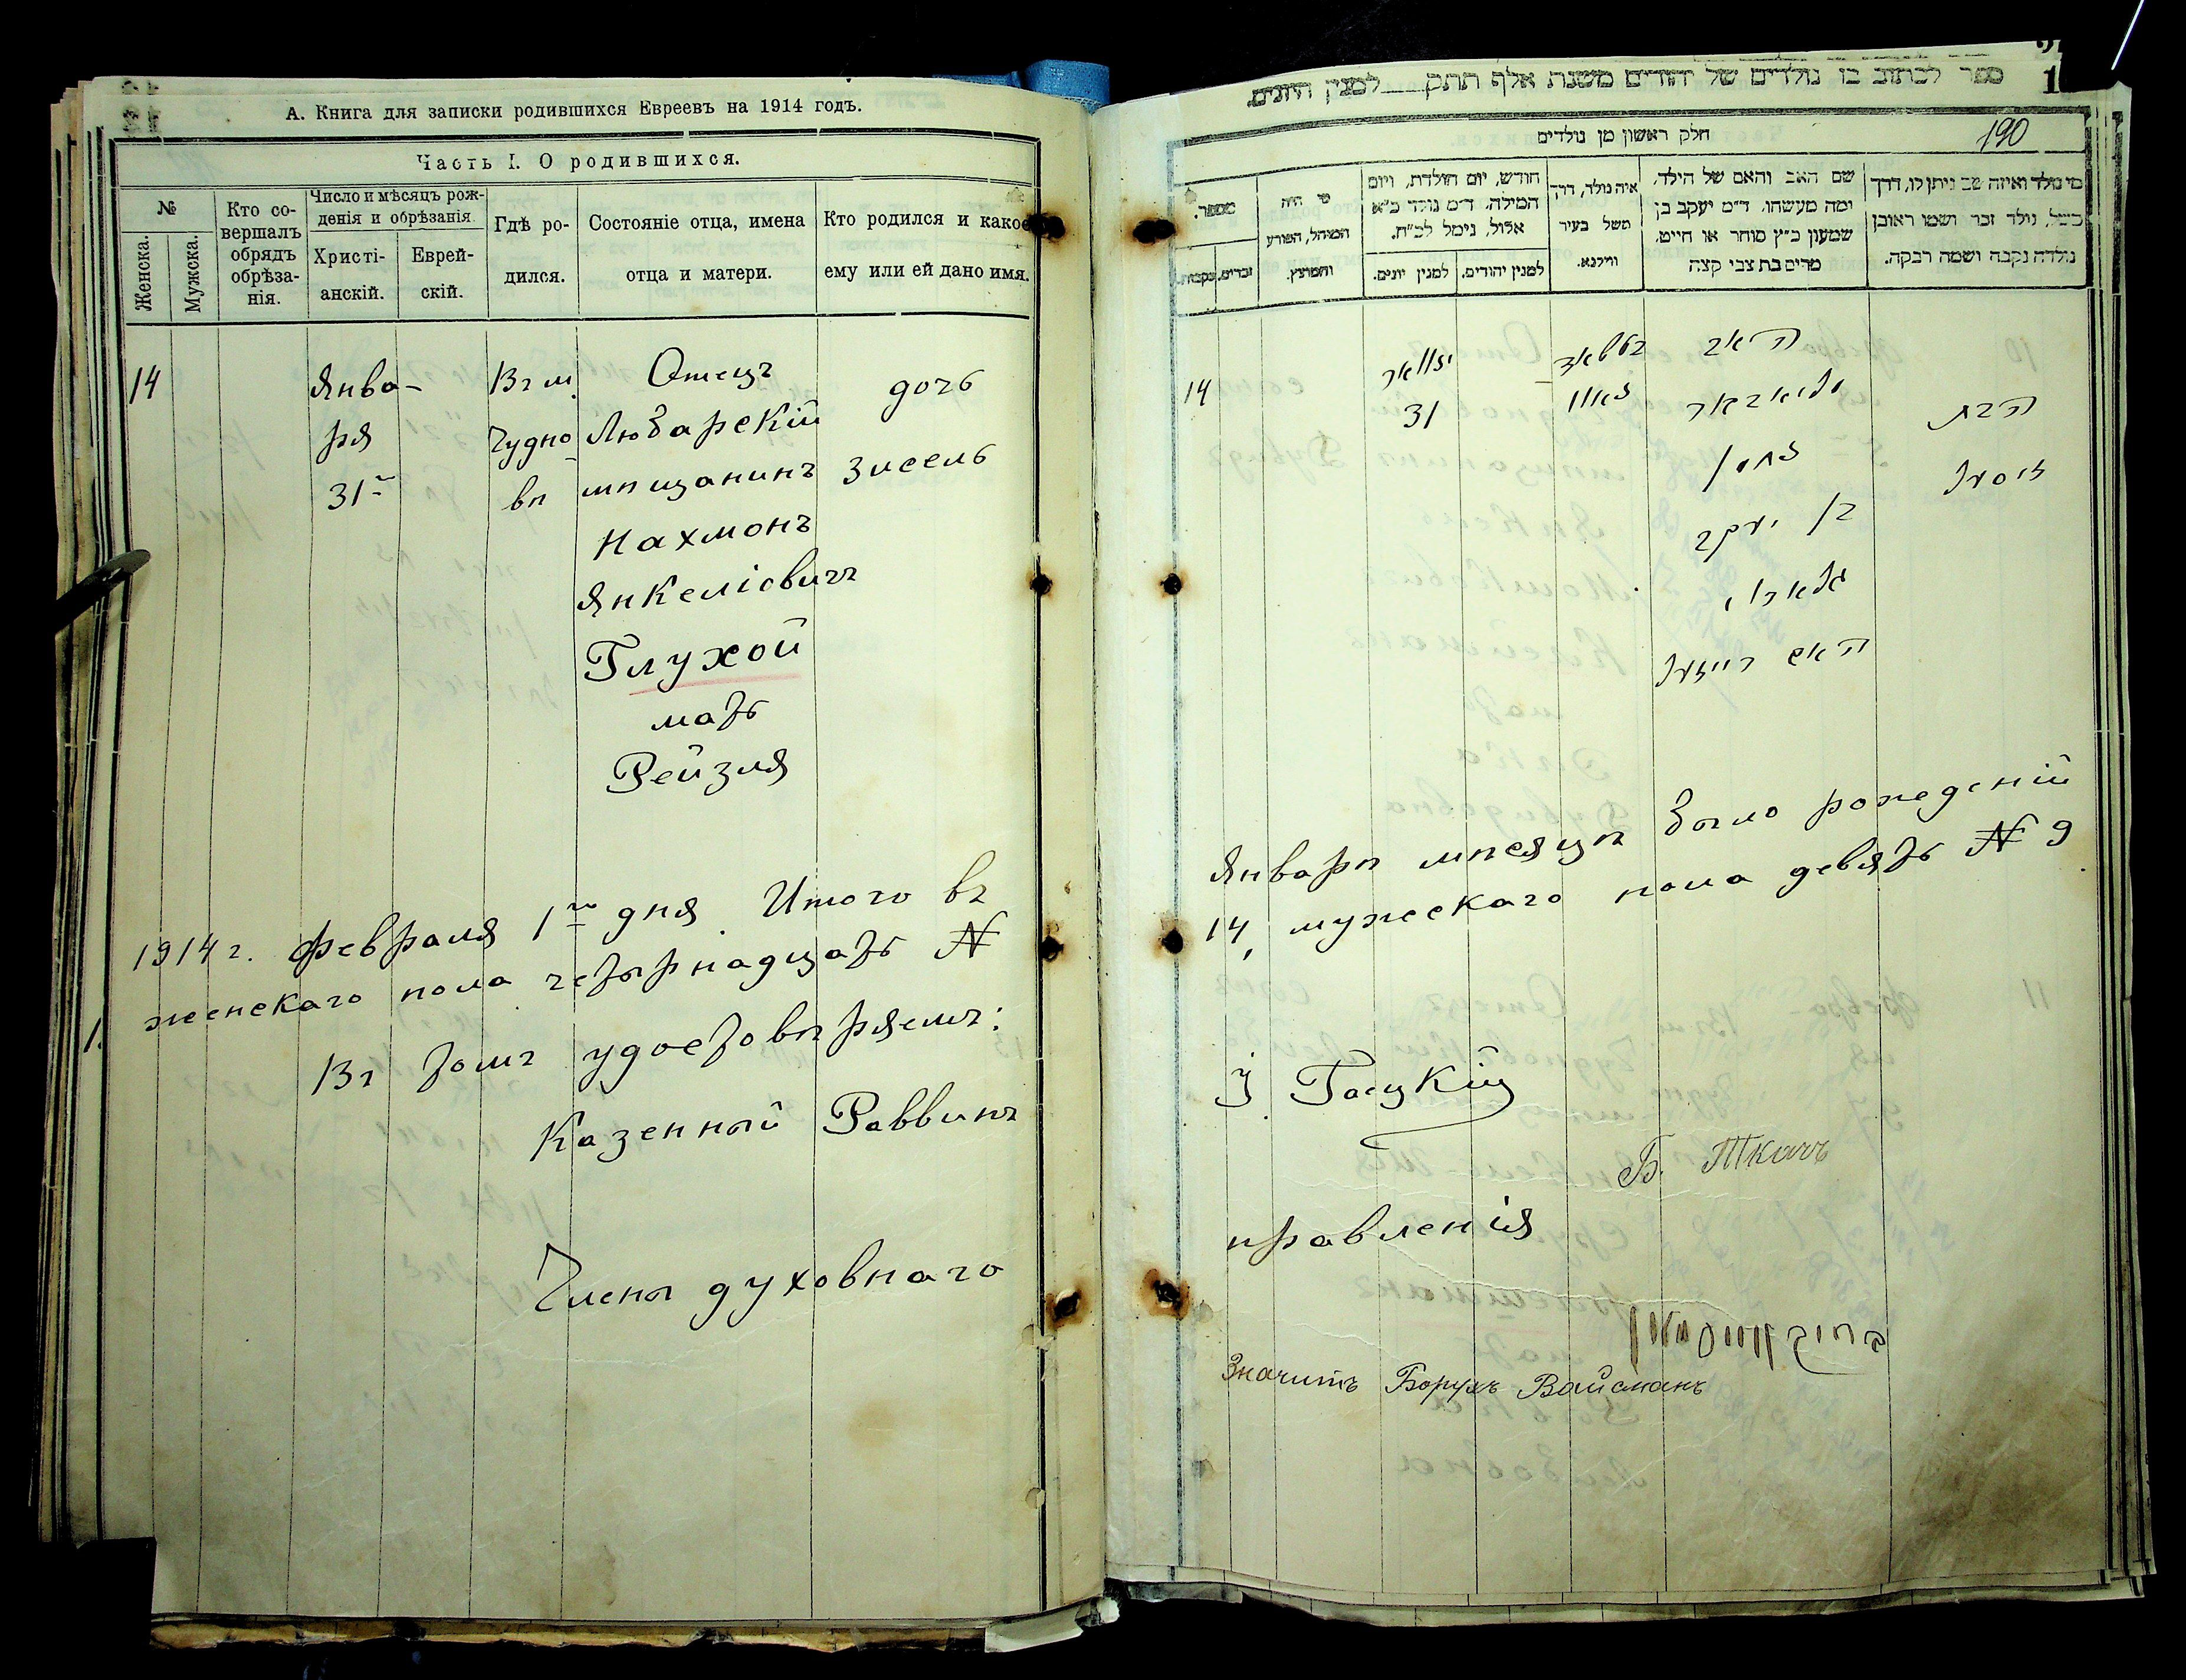 А. Книга для записки родившихся Евреевъ на 1914 годъ.
Часть I. О родившихся.
№
Женска.
Мужска.
Кто со-
вершалъ
обрядъ
обрѣза-
нія.
Число и мѣсяцъ рож-
денія и обрѣзанія.
Христі-
анскій.
Еврей-
скій.
Гдѣ ро-
дился.
Состояніе отца, имена
отца и матери.
Кто родился и какое
ему или ей дано имя.
14
Янва-
ря
31
Въ м.
Чудно-
вѣ
Отецъ
Любарскій
мѣщанинъ
Нахмонъ
Янкеліовичъ
Глухой
мать
Рейзля
дочь
Зисель
1914 г. февраля 1го дня. Итого въ
женскаго пола четырнадцать №
Въ томъ удостовѣряемъ:
Казенный Раввинъ
Члены духовнаго
ספר לכתוב בו נולדים של יהודים משנת אלף תתק למנין היונים.
חלק ראשון מן נולדים
190
מספר.
נקבות.
זכרים.
מי היה
המוהל, הפורע
והמוצץ.
חודש, יום הולדת, ויום
המילה, ד״מ נולד כ״א
אלול, נימל לכ״ח.
למנין יונים.
למנין יהודים.
איה נולד, דרך
משל בעיר
ווילנא.
שם האב והאם של הילד,
ומה מעשהו, ד״מ יעקב בן
שמעון כ״ץ סוחר או חייט,
מרים בת צבי קצה
מי נולד ואיזה שם ניתן לו, דרך
משל, נולד זכר ושמו ראובן
נולדה נקבה ושמה רבקה.
14
יאנואר
31
האב
נחמן
בן יעקב
האם רייזעל
הבת
זיסעל
Январѣ мѣсяцѣ было рожденій
14, мужескаго пола девять № 9
Б. Ткачъ
правленія
ברוך ווייסמאן
Значитъ Борухъ Вайсманъ